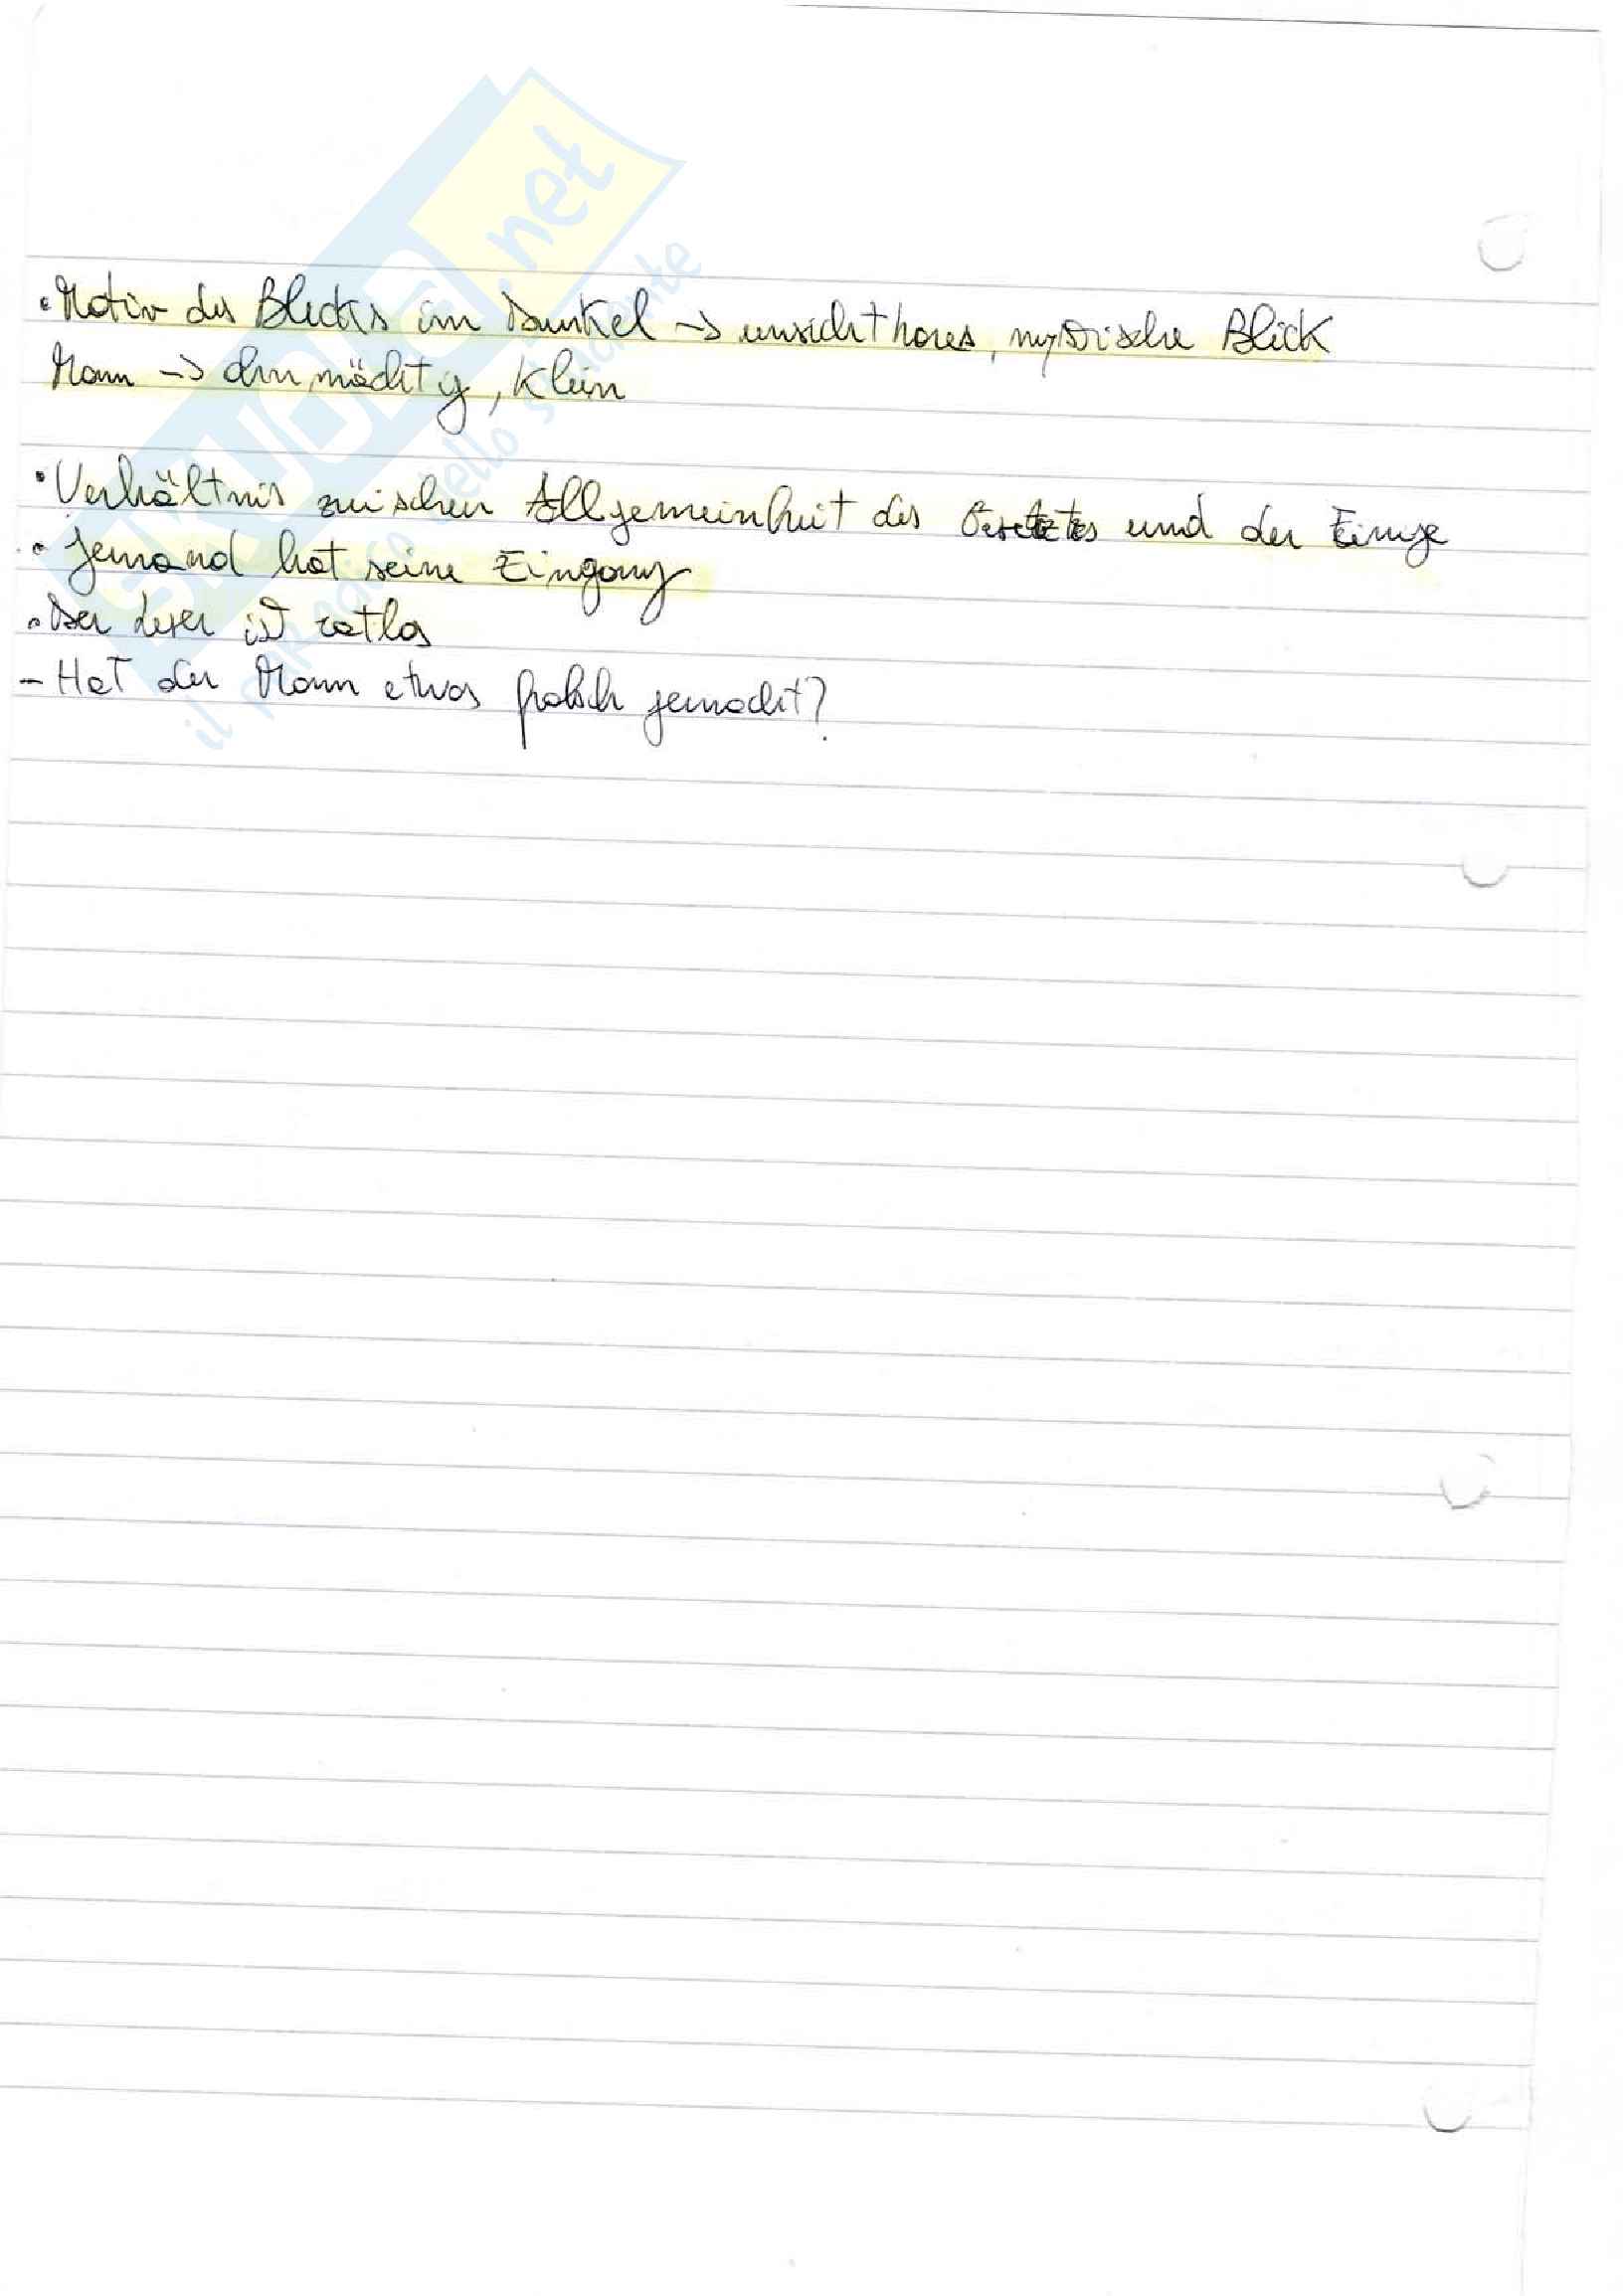 • Motiv des Blicks im Dunkel -> unsichtbares, mystische Blick
Mann -> ohnmächtig, klein
• Verhältnis zwischen Allgemeinheit des Gesetztes und der Einige
• Jemand hat seine Eingang
• Der Leser ist ratlos
- Hat der Mann etwas falsch gemacht?
SKUOLA.net
il paradiso dello studente